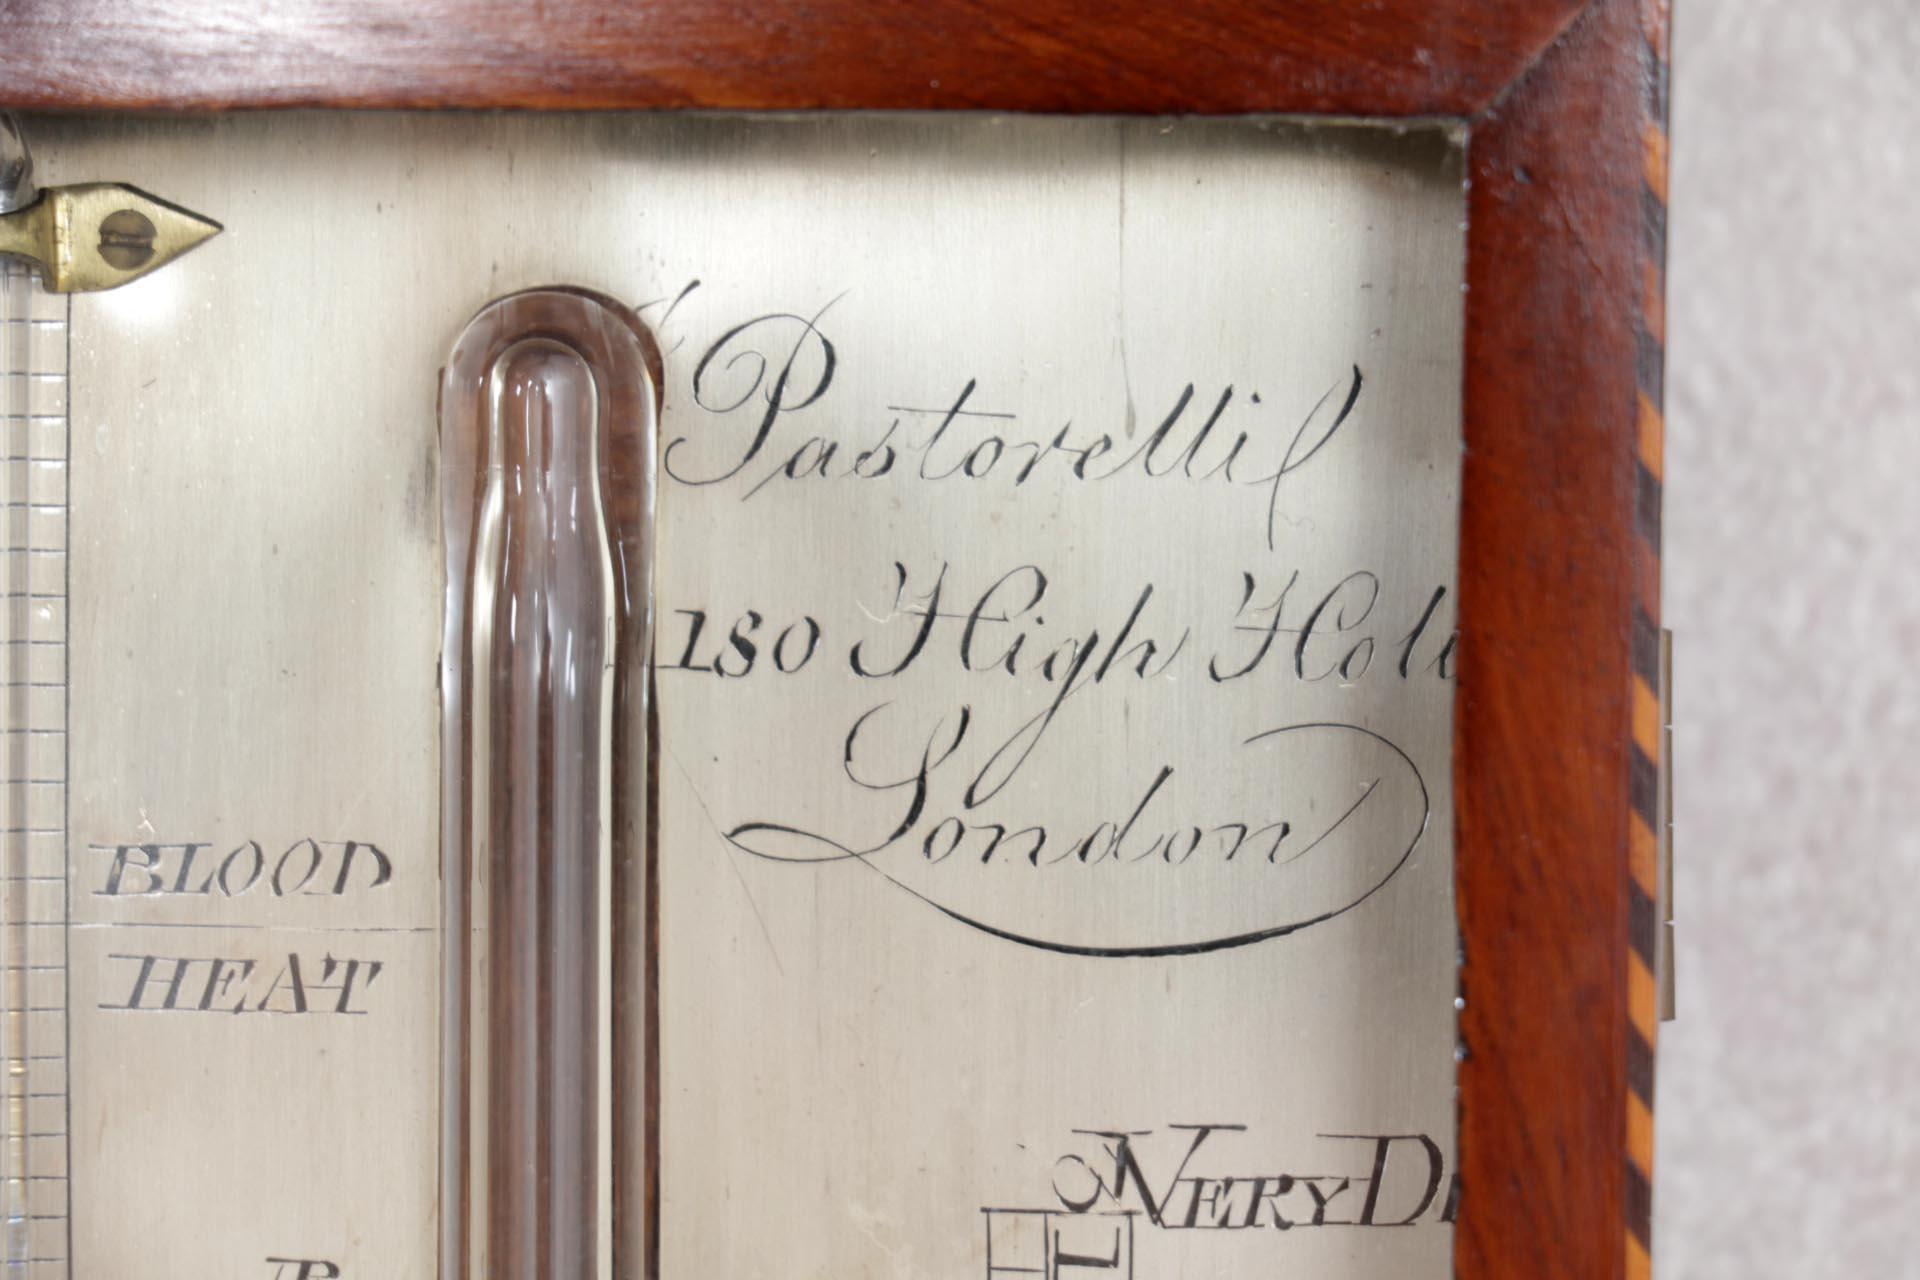 Pastorelli
180 High Hol
London
BLOOD
HEAT
VERY D